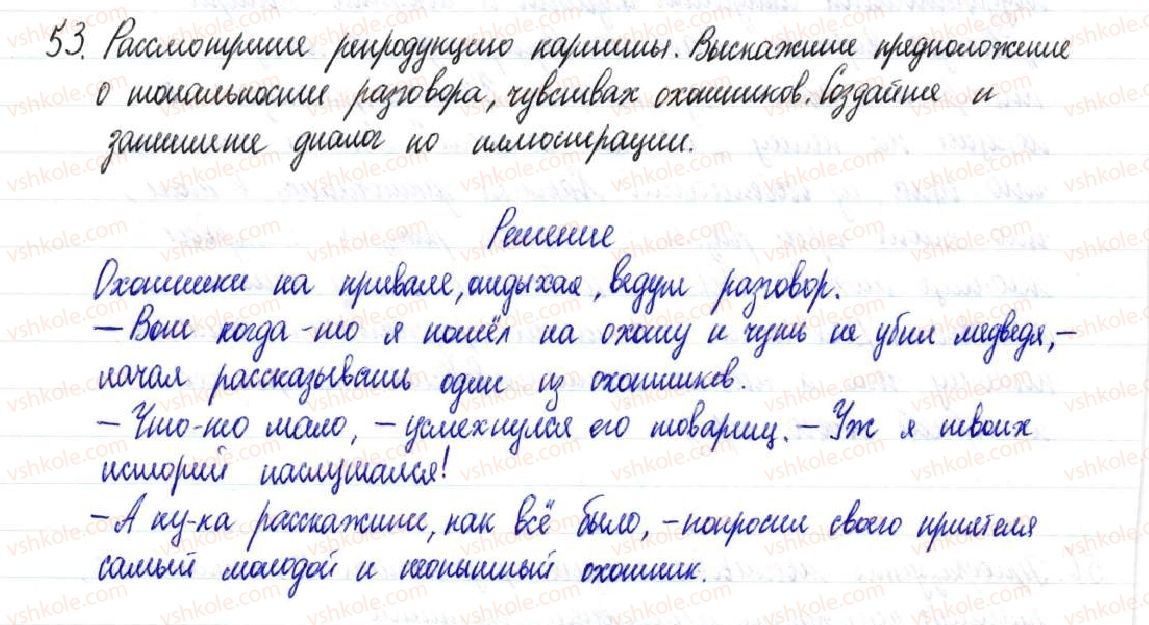 53. Рассмотрите репродукцию картины. Выскажите предположение
о тональности разговора, чувствах охотников. Создайте и
запишите диалог по иллюстрации.
Решение
Охотники на привале, отдыхая, ведут разговор.
– Вот когда-то я пошёл на охоту и чуть не убил медведя, –
начал рассказывать один из охотников.
– Что-то мало, – усмехнулся его товарищ. – Уж я твоих
историй наслушался!
– А ну-ка расскажите, как всё было, – попросил своего приятеля
самый молодой и неопытный охотник.
vshkole.com